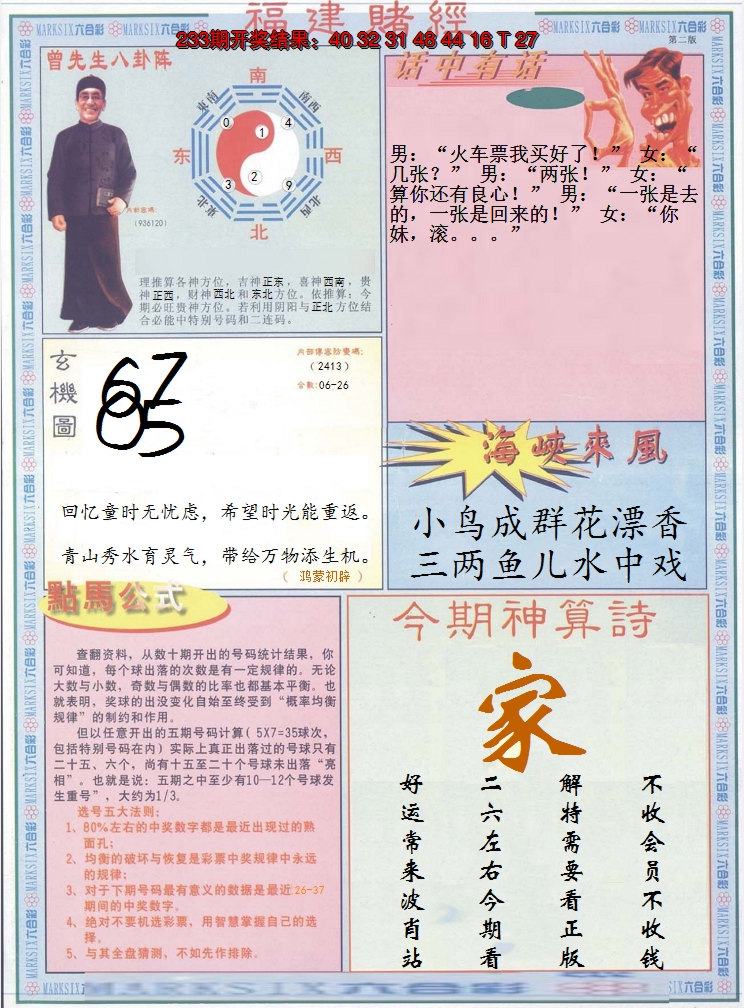 福建賭經
233期开奖结果：40 32 31 48 44 16 T 27
第二版
MARKSIX六合彩
曾先生八卦阵
南
东南
西南
0
1
4
东
西
3
2
9
东北
西北
北
内部密碼:
(936120)
理推算各神方位，吉神正东，喜神西南，贵
神正西，财神西北和东北方位。依推算：今
期必旺贵神方位。若利用阴阳与正北方位结
合必能中特别号码和二连码。
话中有话
男：“火车票我买好了！” 女：“
几张？” 男：“两张！” 女：“
算你还有良心！” 男：“一张是去
的，一张是回来的！” 女：“你
妹，滚。。。”
玄機圖
67
05
(2413)
合数:06-26
回忆童时无忧虑，希望时光能重返。
青山秀水育灵气，带给万物添生机。
（ 鸿蒙初辟 ）
海峽來風
小鸟成群花漂香
三两鱼儿水中戏
點馬公式
查翻资料，从数十期开出的号码统计结果，你
可知道，每个球出落的次数是有一定规律的。无论
大数与小数，奇数与偶数的比率也都基本平衡。也
就表明，奖球的出没变化自始至终受到“概率均衡
规律”的制约和作用。
但以任意开出的五期号码计算（5X7=35球次，
包括特别号码在内）实际上真正出落过的号球只有
二十五、六个，尚有十五至二十个号球未出落“亮
相”。也就是说：五期之中至少有10—12个号球发
生重号”，大约为1/3。
选号五大法则：
1、80%左右的中奖数字都是最近出现过的熟
面孔；
2、均衡的破坏与恢复是彩票中奖规律中永远
的规律；
3、对于下期号码最有意义的数据是最近26-37
期间的中奖数字。
4、绝对不要机选彩票，用智慧掌握自己的选
择。
5、与其全盘猜测，不如先作排除。
今期神算詩
家
不收会员不收钱
解特需要看正版
二六左右今期看
好运常来波肖站